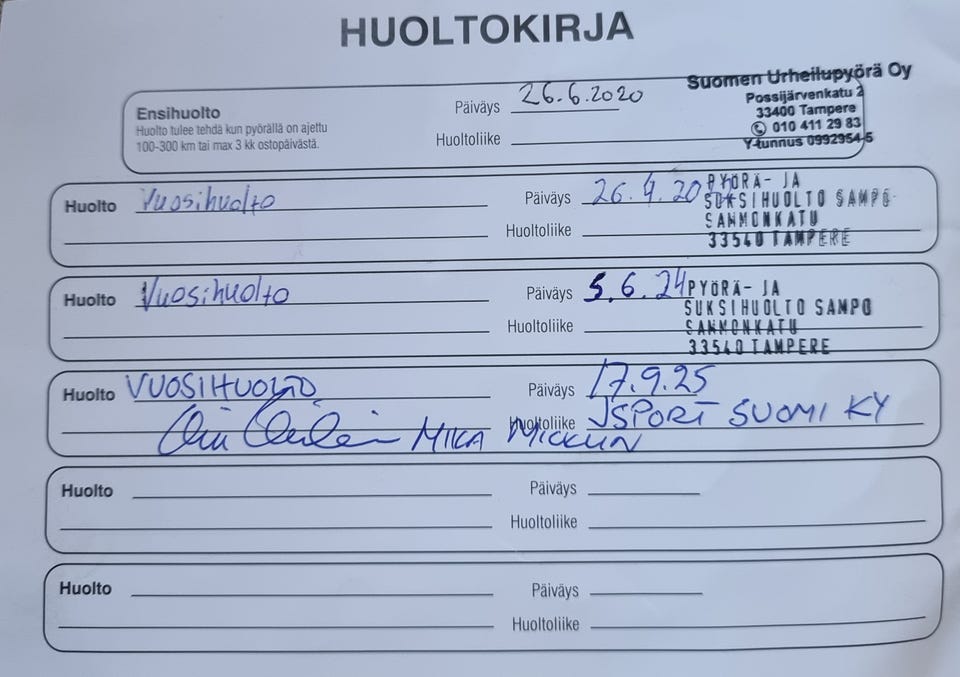 HUOLTOKIRJA
Ensihuolto
Huolto tulee tehdä kun pyörällä on ajettu
100-300 km tai max 3 kk ostopäivästä.
Päiväys 26.6.2020
Huoltoliike
Suomen Urheilupyörä Oy
Possijärvenkatu 2
33400 Tampere
010 411 29 83
Y-tunnus 0992954-5
Huolto Vuosihuolto
Päiväys 26.4.20
Huoltoliike
PYÖRÄ- JA
SUKSIHUOLTO SAMPO
SAMMONKATU
33540 TAMPERE
Huolto Vuosihuolto
Päiväys 5.6.24
Huoltoliike
PYÖRÄ- JA
SUKSIHUOLTO SAMPO
SAMMONKATU
33540 TAMPERE
Huolto VUOSIHUOLTO
Päiväys 17.9.25
Huoltoliike JSPORT SUOMI KY
MIKA
Huolto
Päiväys
Huoltoliike
Huolto
Päiväys
Huoltoliike